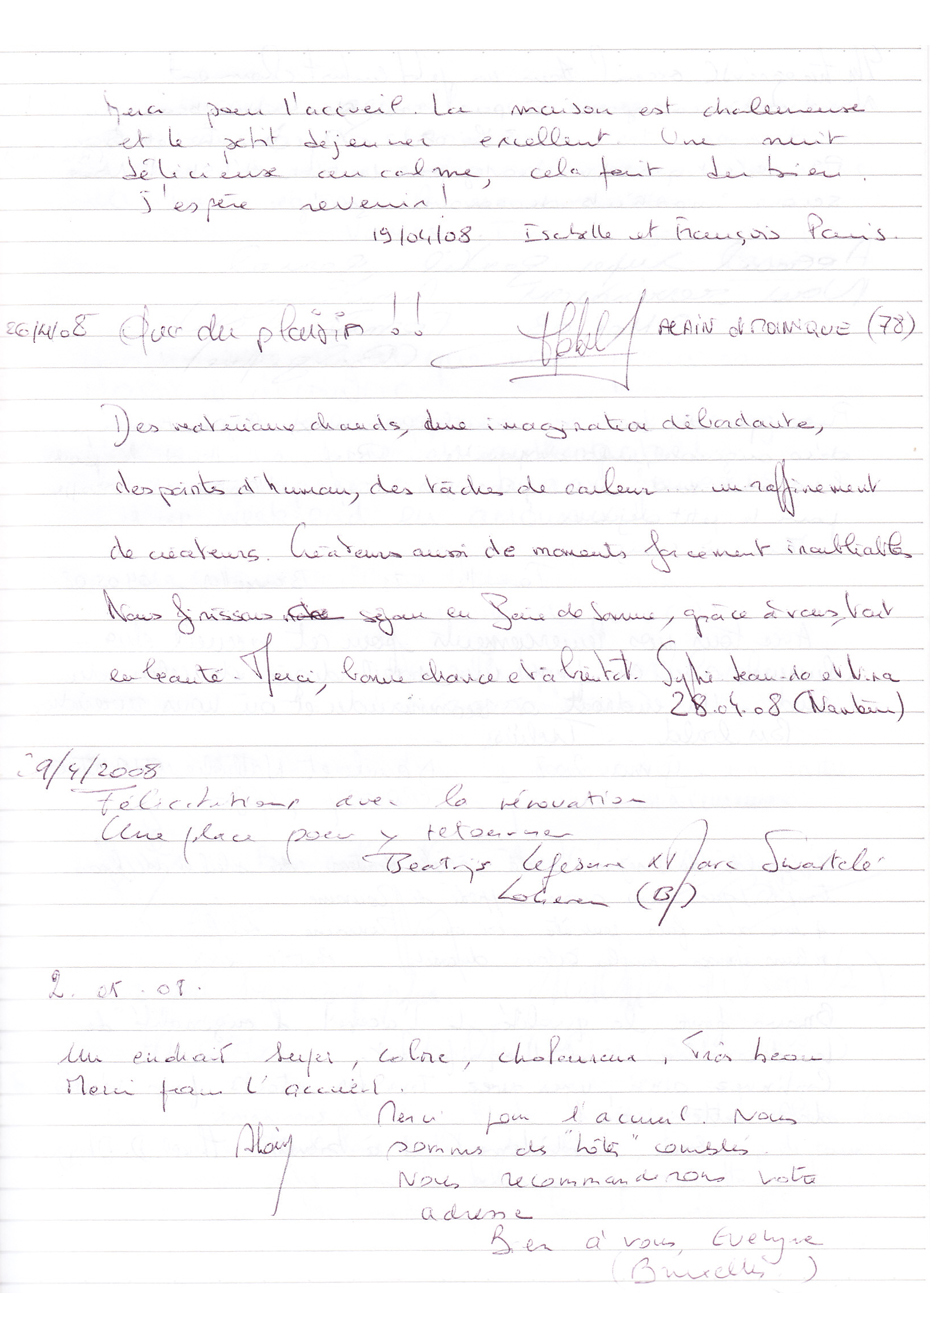 Merci pour l'accueil. La maison est chaleureuse
et le petit déjeuner excellent. Une nuit
délicieuse au calme, cela fait du bien.
J'espère revenir!
19/04/08 Isabelle et François Paris.
26/4/08 Que du plaisir !! ALAIN DOMINIQUE (78)
Des matériaux chauds, une imagination débordante,
des points d'humour, des tâches de couleur un raffinement
de créateurs. Créateurs aussi de moments forcément inoubliables
Nous finissons séjour en Baie de Somme, grâce à vous, tout
en beauté. Merci, bonne chance et à bientôt. Sylvie Jean-do et
28.04.08 (Nanterre)
29/4/2008
Félicitations avec la rénovation
Une place pour y retourner
Beatrijs et Marc
Lokeren (B)
2. 05. 08.
Un endroit super, coloré, chaleureux, Très beau
Merci pour l'accueil.
Merci pour l'accueil. Nous
Alain sommes des "hôtes" comblés.
Nous recommanderons votre
adresse
Bien à vous, Evelyne
(Bruxelles)